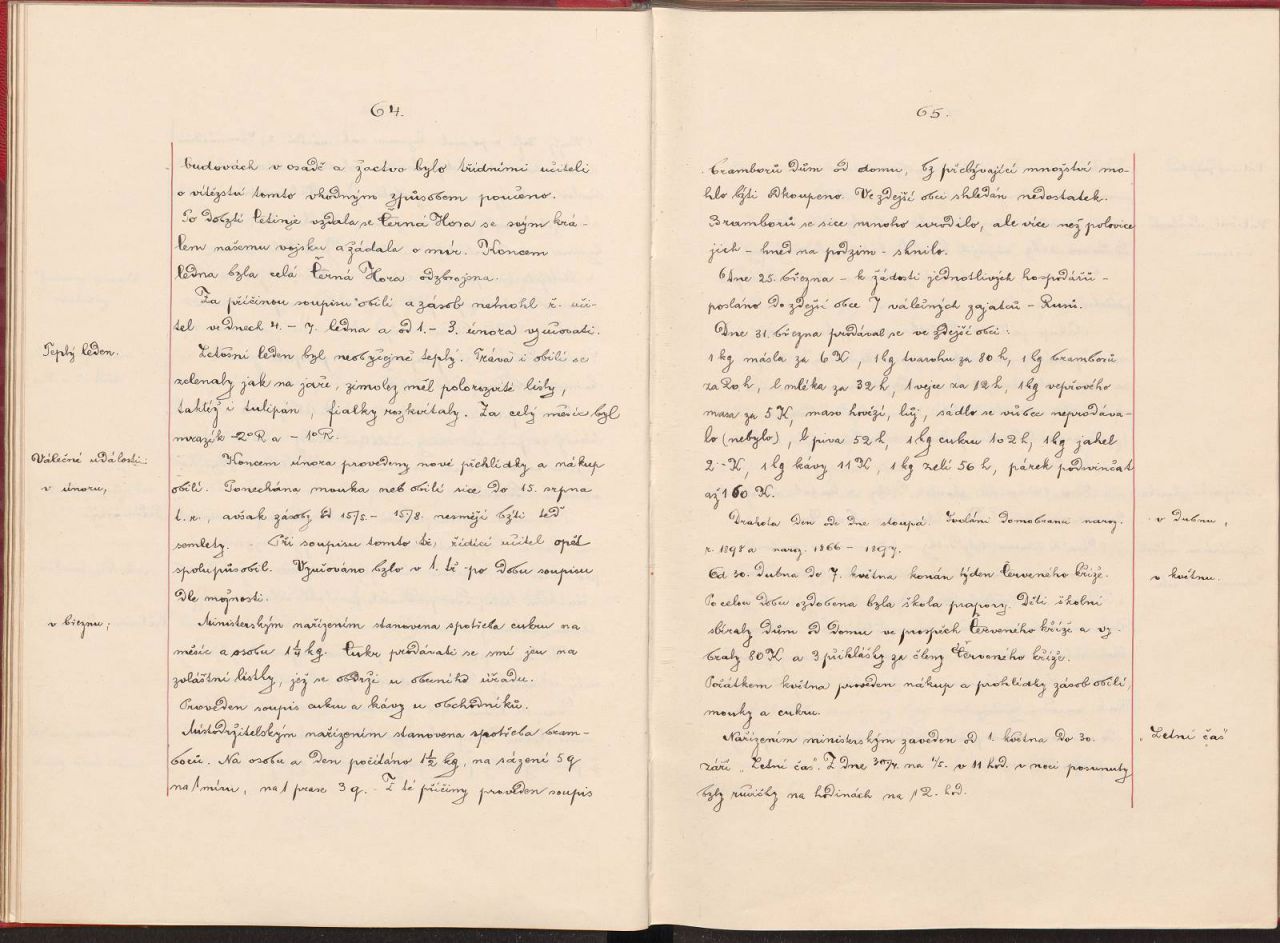 64.
budovách v osadě a žactvo bylo třídními učiteli
o vítězství tomto vhodným způsobem poučeno.
Po dobytí Cetinje vzdala se Černá Hora se svým krá-
lem našemu vojsku a žádala o mír. Koncem
ledna byla celá Černá Hora odzbrojena.
Za příčinou soupisu obilí a zásob nemohl ř. uči-
tel ve dnech 4. – 7. ledna a od 1. – 3. února vyučovati.
Teplý leden.
Letošní leden byl neobyčejně teplý. Tráva i obilí se
zelenaly jak na jaře, zimolez měl polorozvité listy,
taktéž i tulipán, fialky rozkvítaly. Za celý měsíc byl
mrazík -2° R a -1° R.
Válečné události
v únoru,
Koncem února provedeny nové přehlídky a nákup
obilí. Ponechána mouka neb obilí sice do 15. srpna
t. r., avšak zásoby od 15/5. – 15/8. nesmějí býti teď
semlety. Při soupisu tomto tě, řídící učitel opět
spolupůsobil. Vyučováno bylo v 1. tř. po dobu soupisu
dle možnosti.
v březnu,
Ministerským nařízením stanovena spotřeba cukru na
měsíc a osobu 1 1/4 kg. Cukr prodávati se smí jen na
zvláštní lístky, jež se obdrží u obecního úřadu.
Proveden soupis cukru a kávy u obchodníků.
Místodržitelským nařízením stanovena spotřeba bram-
borů. Na osobu a den počítáno 1 1/2 kg, na sázení 5 q
na 1 míru, na 1 prase 3 q. – Z té příčiny proveden soupis
65.
bramborů dům od domu, by přebývající množství mo-
hlo býti odkoupeno. Ve zdejší obci shledán nedostatek.
Bramborů se sice mnoho urodilo, ale více než polovice
jich – hned na podzim – shnilo.
Dne 25. března – k žádosti jednotlivých hospodářů –
posláno do zdejší obce 7 válečných zajatců – Rusů.
Dne 31. března prodával se ve zdejší obci:
1 kg másla za 6 K, 1 kg tvarohu za 80 h, 1 kg bramborů
za 20 h, l mléka za 32 h, 1 vejce za 12 h, 1 kg vepřového
masa za 5 K, maso hovězí, lůj, sádlo se vůbec neprodáva-
lo (nebylo), l piva 52 h, 1 kg cukru 102 h, 1 kg jahel
2 – K, 1 kg kávy 11 K, 1 kg zelí 56 h, párek podsvinčat
až 160 K.
v dubnu,
Drahota den ode dne stoupá. Svoláni domobranci naroz.
r. 1898 a naroz. 1866 – 1897.
v květnu.
Od 30. dubna do 7. května konán týden Červeného kříže.
Po celou dobu ozdobena byla škola prapory. Děti školní
sbíraly dům od domu ve prospěch Červeného kříže a vy-
braly 80 K a 3 přihlášky za členy Červeného kříže.
Počátkem května proveden nákup a prohlídky zásob obilí,
mouky a cukru.
„Letní čas“
Nařízením ministerským zaveden od 1. května do 30.
září „Letní čas“. Z dne 30/4. na 1/5. v 11 hod. v noci posunuty
byly ručičky na hodinách na 12. hod.